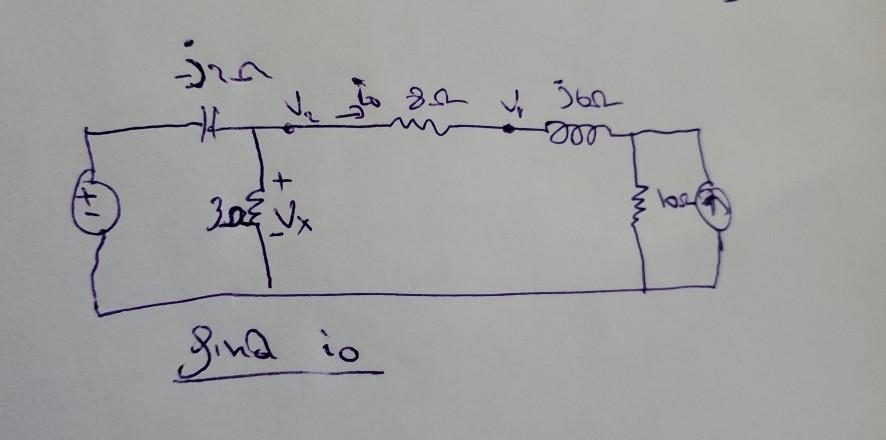 -j2Ω
V₂ i₀ 8Ω V₁ j6Ω
+
-
3Ω
+
Vx
-
10Ω
find i₀